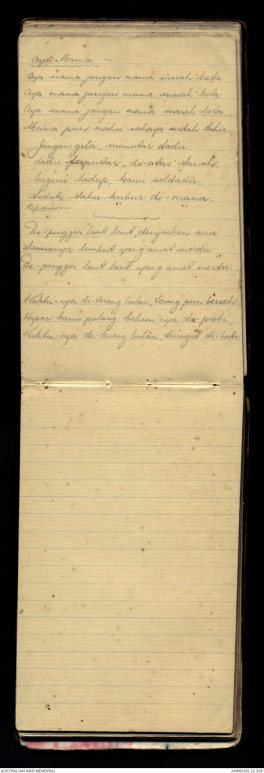 Aya Mama
Aya mama jangan mama marah beta
Aya mama jangan mama marah beta
Aya mama jangan mama marah beta
Mama puna mahu sahaya sudah tahu.
Jangan gila, memutar dadu
dadu terputar, de-atas tanah.
bagini hidup, kami soldadu,
tidak tahu kubur de-mana.
Refrain
De-pinggir laut laut, dengarkan sera
Suaranya lembut yang amat merdu
De-pinggir laut laut yang amat merdu
Waktu-nya de-terang bulan, terang pun berseh
Kapan kami pulang belum-nya da-pasti.
Waktu-nya de-terang bulan, teringat di-hati
AUSTRALIAN WAR MEMORIAL